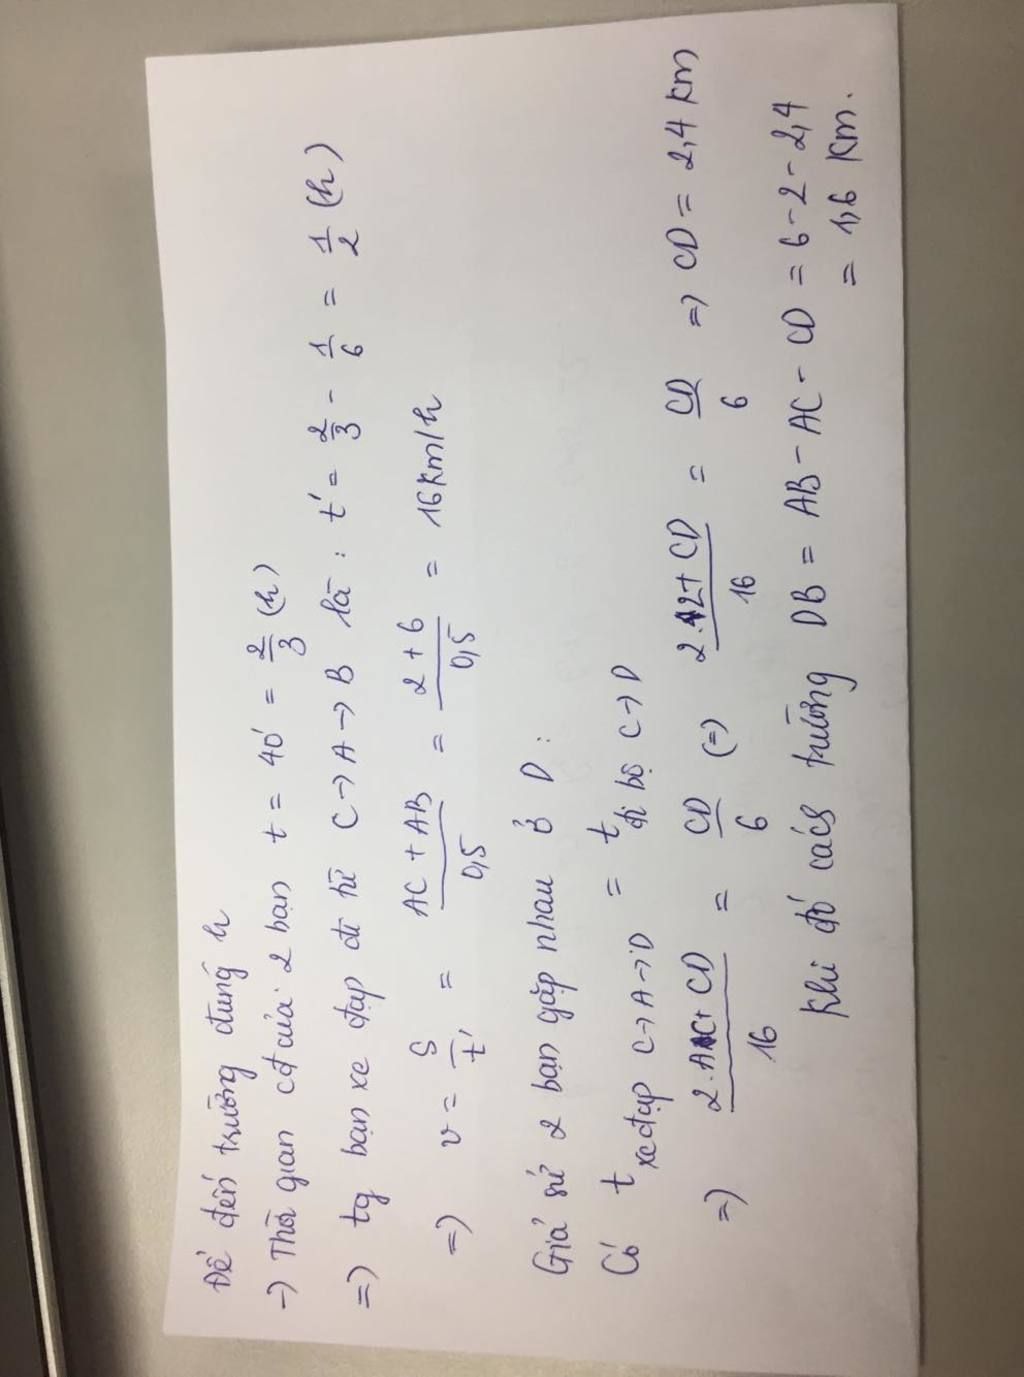 Để đến trường đúng h
→ Thời gian cđ của 2 bạn t = 40' = 2/3 (h)
=> tg bạn xe đạp đi từ C→A→B là: t' = 2/3 - 1/6 = 1/2 (h)
=> v = S/t' = (AC + AB)/0,5 = (2 + 6)/0,5 = 16 km/h
Giả sử 2 bạn gặp nhau ở D:
Có t xe đạp C→A→D = t đi bộ C→D
=> (2.AC + CD)/16 = CD/6 (=) (2.2 + CD)/16 = CD/6 => CD = 2,4 km
Khi đó cách trường DB = AB - AC - CD = 6 - 2 - 2,4
= 1,6 km.